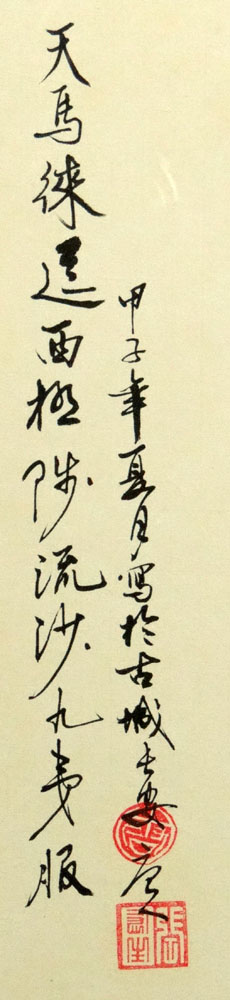 天馬徠從西極陟流沙九夷服
甲子年夏月寫於古城長安